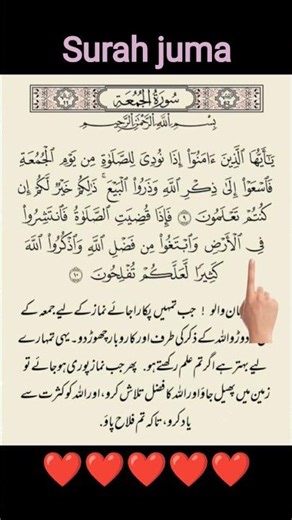 Surah juma
سُورَةُ الْجُمُعَة
بِسْمِ اللَّهِ الرَّحْمَٰنِ الرَّحِيمِ
يَٰٓأَيُّهَا الَّذِينَ ءَامَنُوٓا۟ إِذَا نُودِىَ لِلصَّلَوٰةِ مِن يَوْمِ الْجُمُعَةِ
فَاسْعَوْا۟ إِلَىٰ ذِكْرِ اللَّهِ وَذَرُوا۟ الْبَيْعَ ۚ ذَٰلِكُمْ خَيْرٌ لَّكُمْ إِن
كُنتُمْ تَعْلَمُونَ ۝٩ فَإِذَا قُضِيَتِ الصَّلَوٰةُ فَانتَشِرُوا۟
فِى الْأَرْضِ وَابْتَغُوا۟ مِن فَضْلِ اللَّهِ وَاذْكُرُوا۟ اللَّهَ
كَثِيرًا لَّعَلَّكُمْ تُفْلِحُونَ ۝١٠
مان والو! جب تمہیں پکارا جائے نماز کے لیے جمعہ کے
دوڑو اللہ کے ذکر کی طرف اور کاروبار چھوڑ دو۔ یہی تمہارے
لیے بہتر ہے اگر تم علم رکھتے ہو۔ پھر جب نماز پوری ہو جائے تو
زمین میں پھیل جاؤ اور اللہ کا فضل تلاش کرو، اور اللہ کو کثرت سے
یاد کرو، تاکہ تم فلاح پاؤ۔